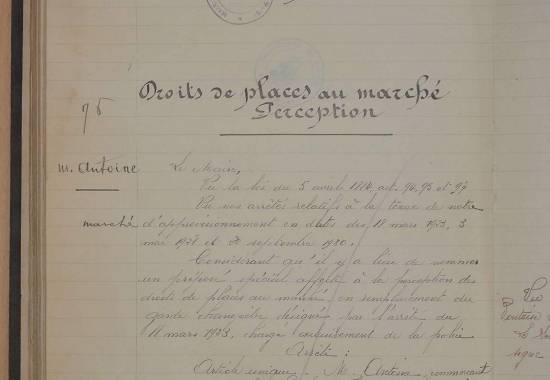 Droits de places au marché
Perception
75
M. Antoine
marché
Le Maire,
Vu la loi du 5 avril 1884, art. 94, 95 et 97
Vu nos arrêtés relatifs à la tenue de notre
d'approvisionnement en dates des 18 mars 1923, 3
mai 1928 et septembre 1930.
Considérant qu'il y a lieu de nommer
un préposé spécial affecté à la perception des
droits de places au marché en remplacement du
garde champêtre désigné par l'arrêté du
18 mars 1923, chargé de la police
Arrête :
Article unique - M. Antoine, commerçant
Vu